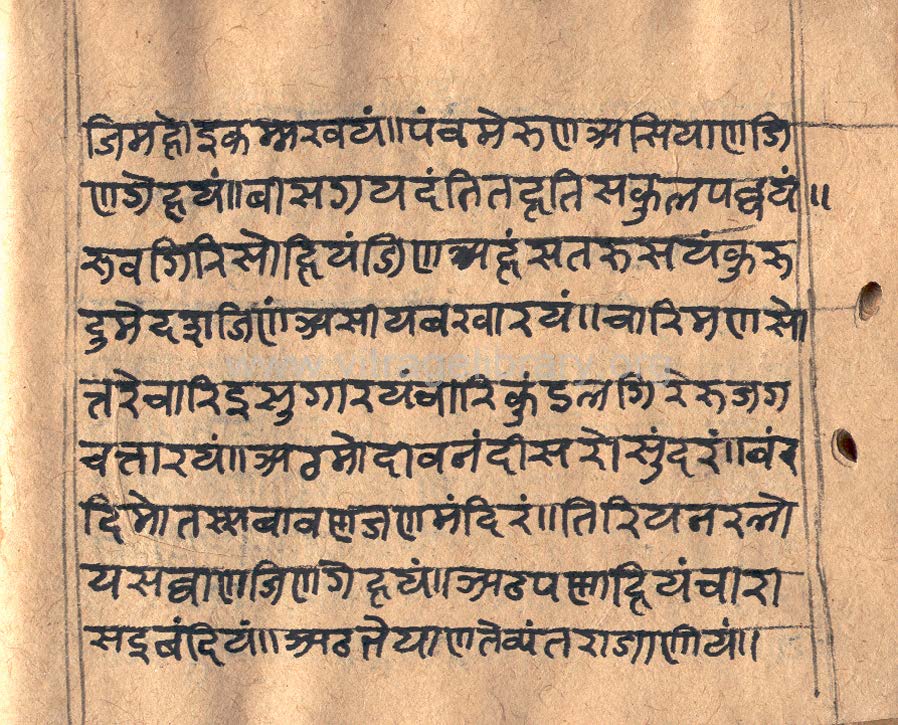 जिमहोइकम्मखयं॥पंचमेरुणअसियाणजि
णगेहयं॥बीसगयदंतितहतिसकुलपव्वयं॥
रूवगिरिसोहियंजिणअहंसतरुसयंकुरु
दुमेदशजिणंअसीयबरवारयं॥चारिमणसो
त्तरेचारिइसुगारयंचारिकुंडलगिरेरुजग
चत्तारयं॥अठमोदीवनंदीसरोसुंदरं॥वंर
दिमोतस्सबावणजणमंदिरं॥तिरियनरलो
यसव्वाणजिणगेहयं॥अठपणाहियंचारी
सइबंदियं॥अठतेयाणतेव्यंतराजाणीयं।
www.vitragelibrary.org